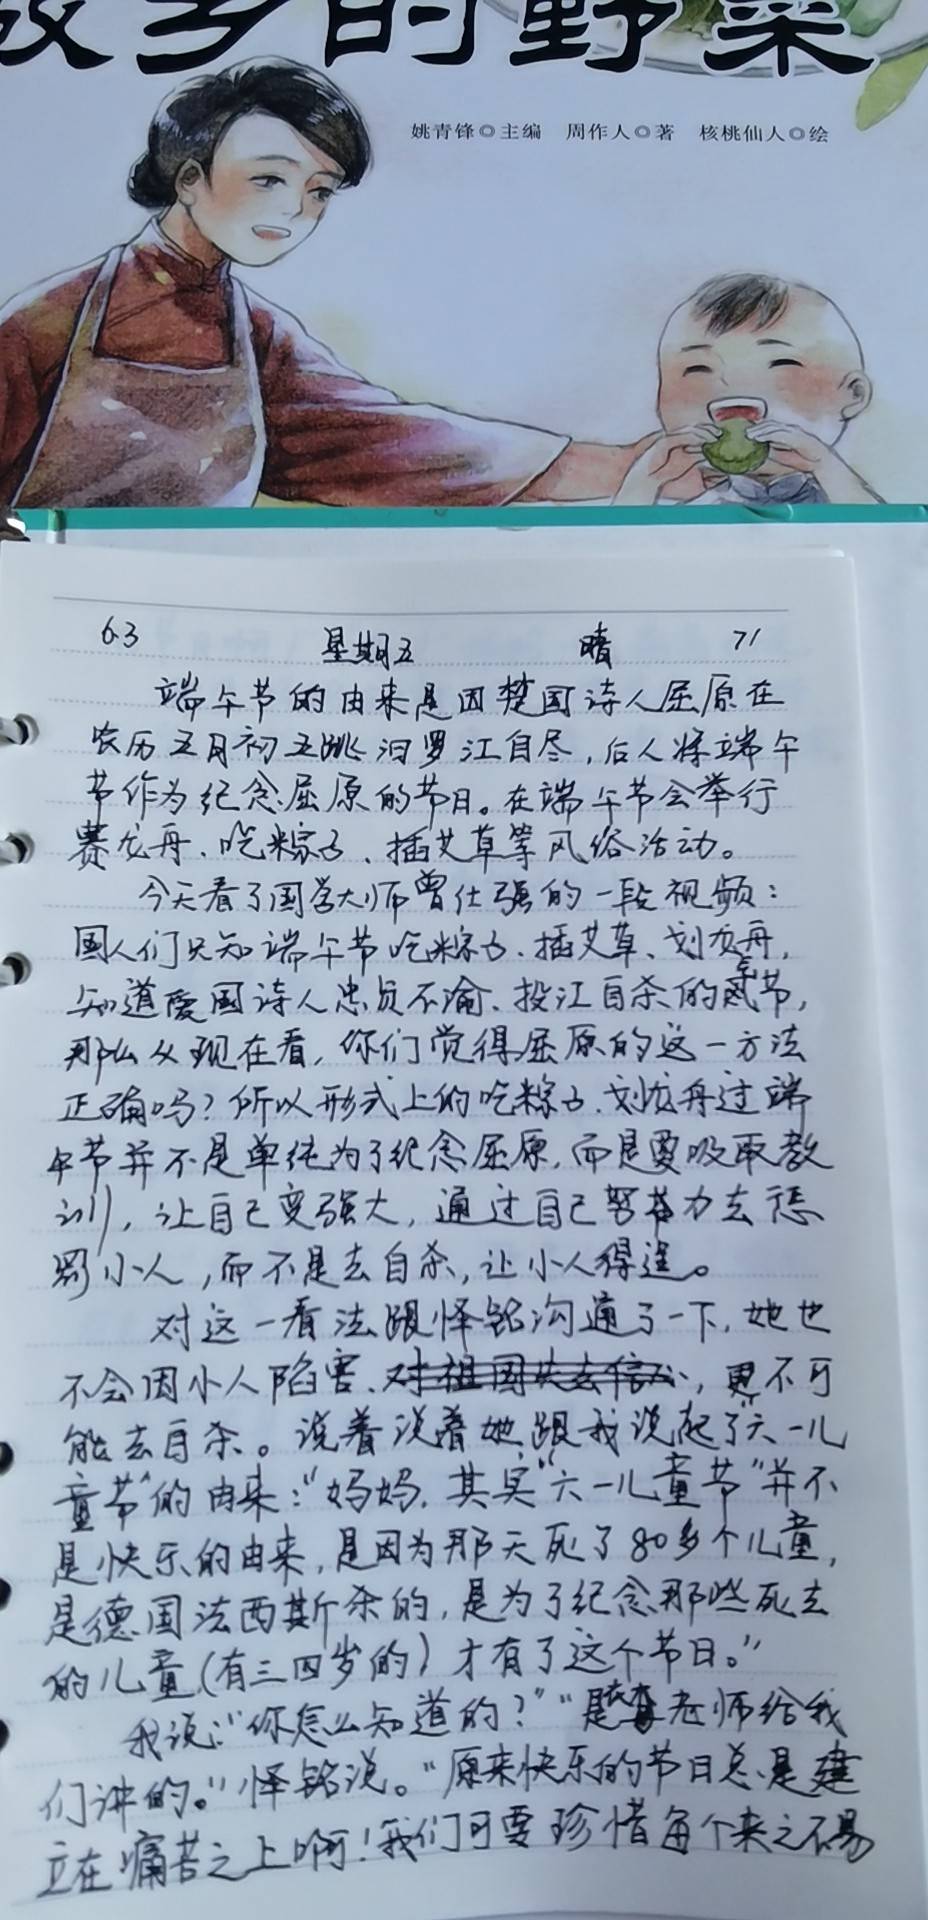 故乡的野菜
姚青锋◎主编 周作人◎著 核桃仙人◎绘
6.3 星期五 晴 71
端午节的由来是因楚国诗人屈原在
农历五月初五跳汨罗江自尽,后人将端午
节作为纪念屈原的节日。在端午节会举行
赛龙舟、吃粽子、插艾草等风俗活动。
今天看了国学大师曾仕强的一段视频:
国人们只知端午节吃粽子、插艾草、划龙舟,
知道爱国诗人忠贞不渝、投江自杀的气节,
那么从现在看,你们觉得屈原的这一方法
正确吗?所以形式上的吃粽子、划龙舟过端
午节并不是单纯为了纪念屈原,而是要吸取教
训,让自己变强大,通过自己努力去惩
罚小人,而不是去自杀,让小人得逞。
对这一看法跟怿铭沟通了一下,她也
不会因小人陷害、对祖国失去信心,更不可
能去自杀。说着说着她跟我说起了“六一儿
童节”的由来:“妈妈,其实“六一儿童节”并不
是快乐的由来,是因为那天死了80多个儿童,
是德国法西斯杀的,是为了纪念那些死去
的儿童(有三四岁的)才有了这个节日。”
我说:“你怎么知道的?”“是老师给我
们讲的。”怿铭说。“原来快乐的节日总是建
立在痛苦之上啊!我们可要珍惜每个来之不易